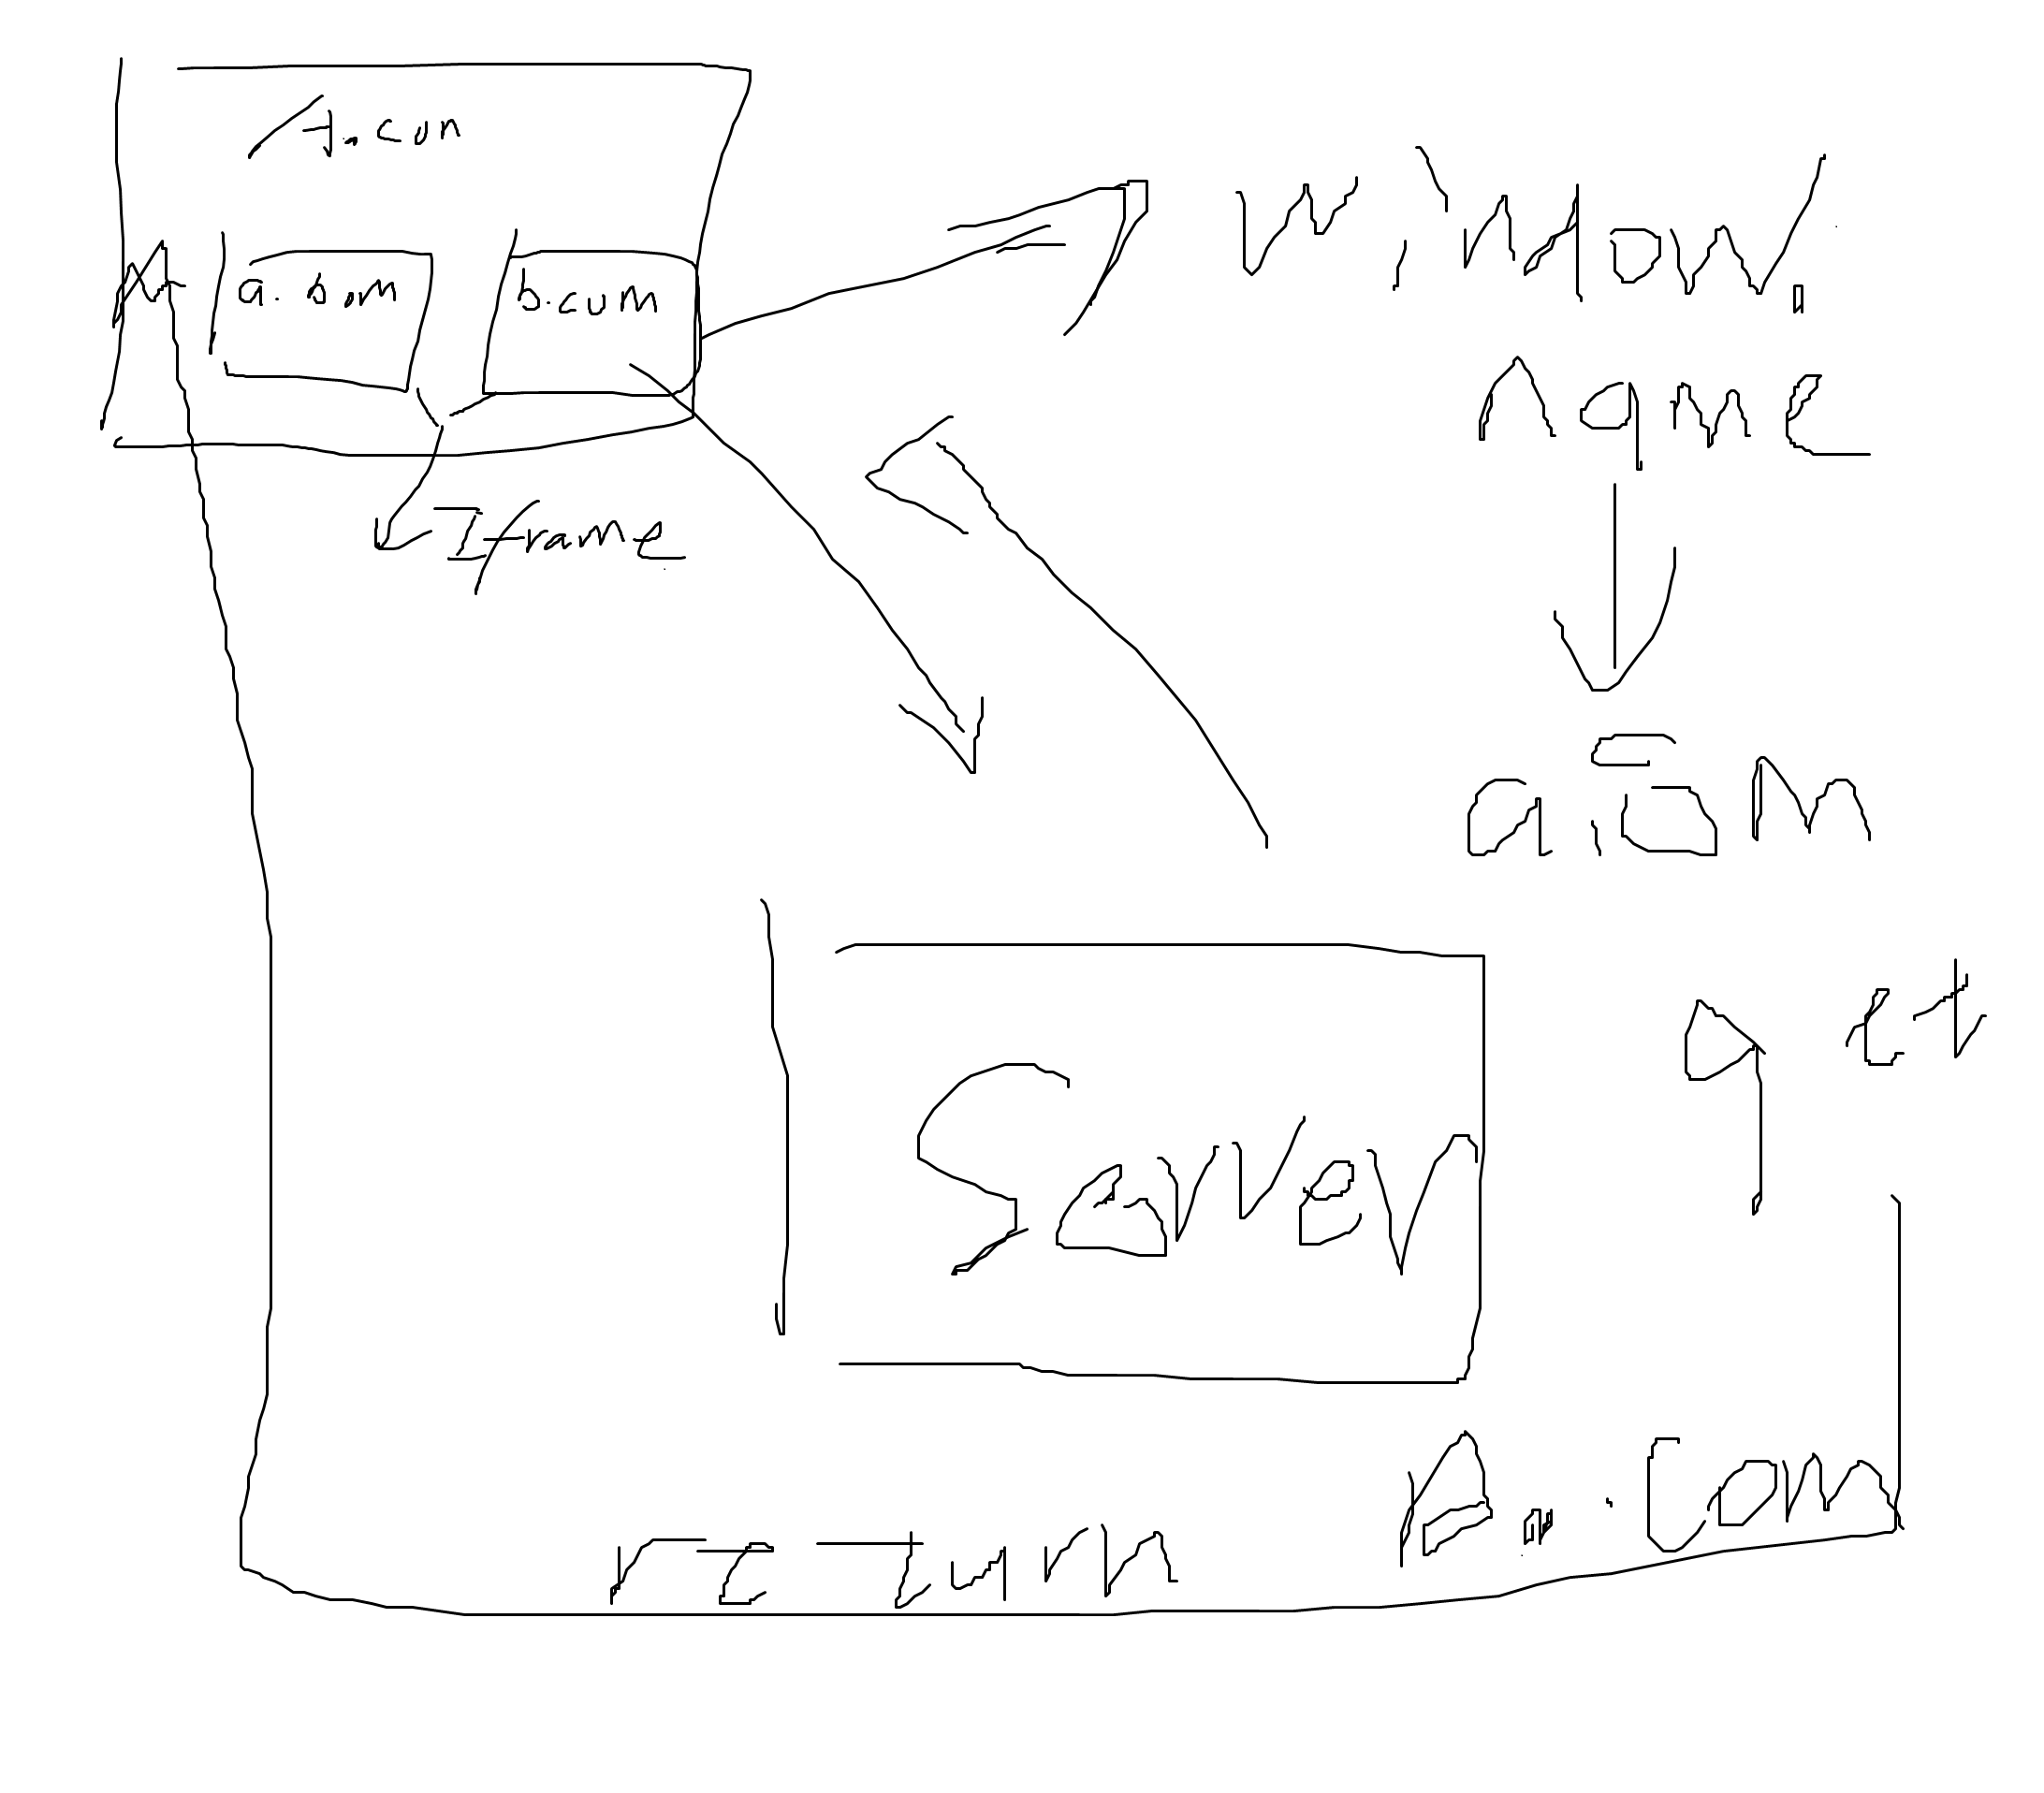 A.com
a.com
b.com
Iframe
window.
name
a.com
et
Server
A.com
return